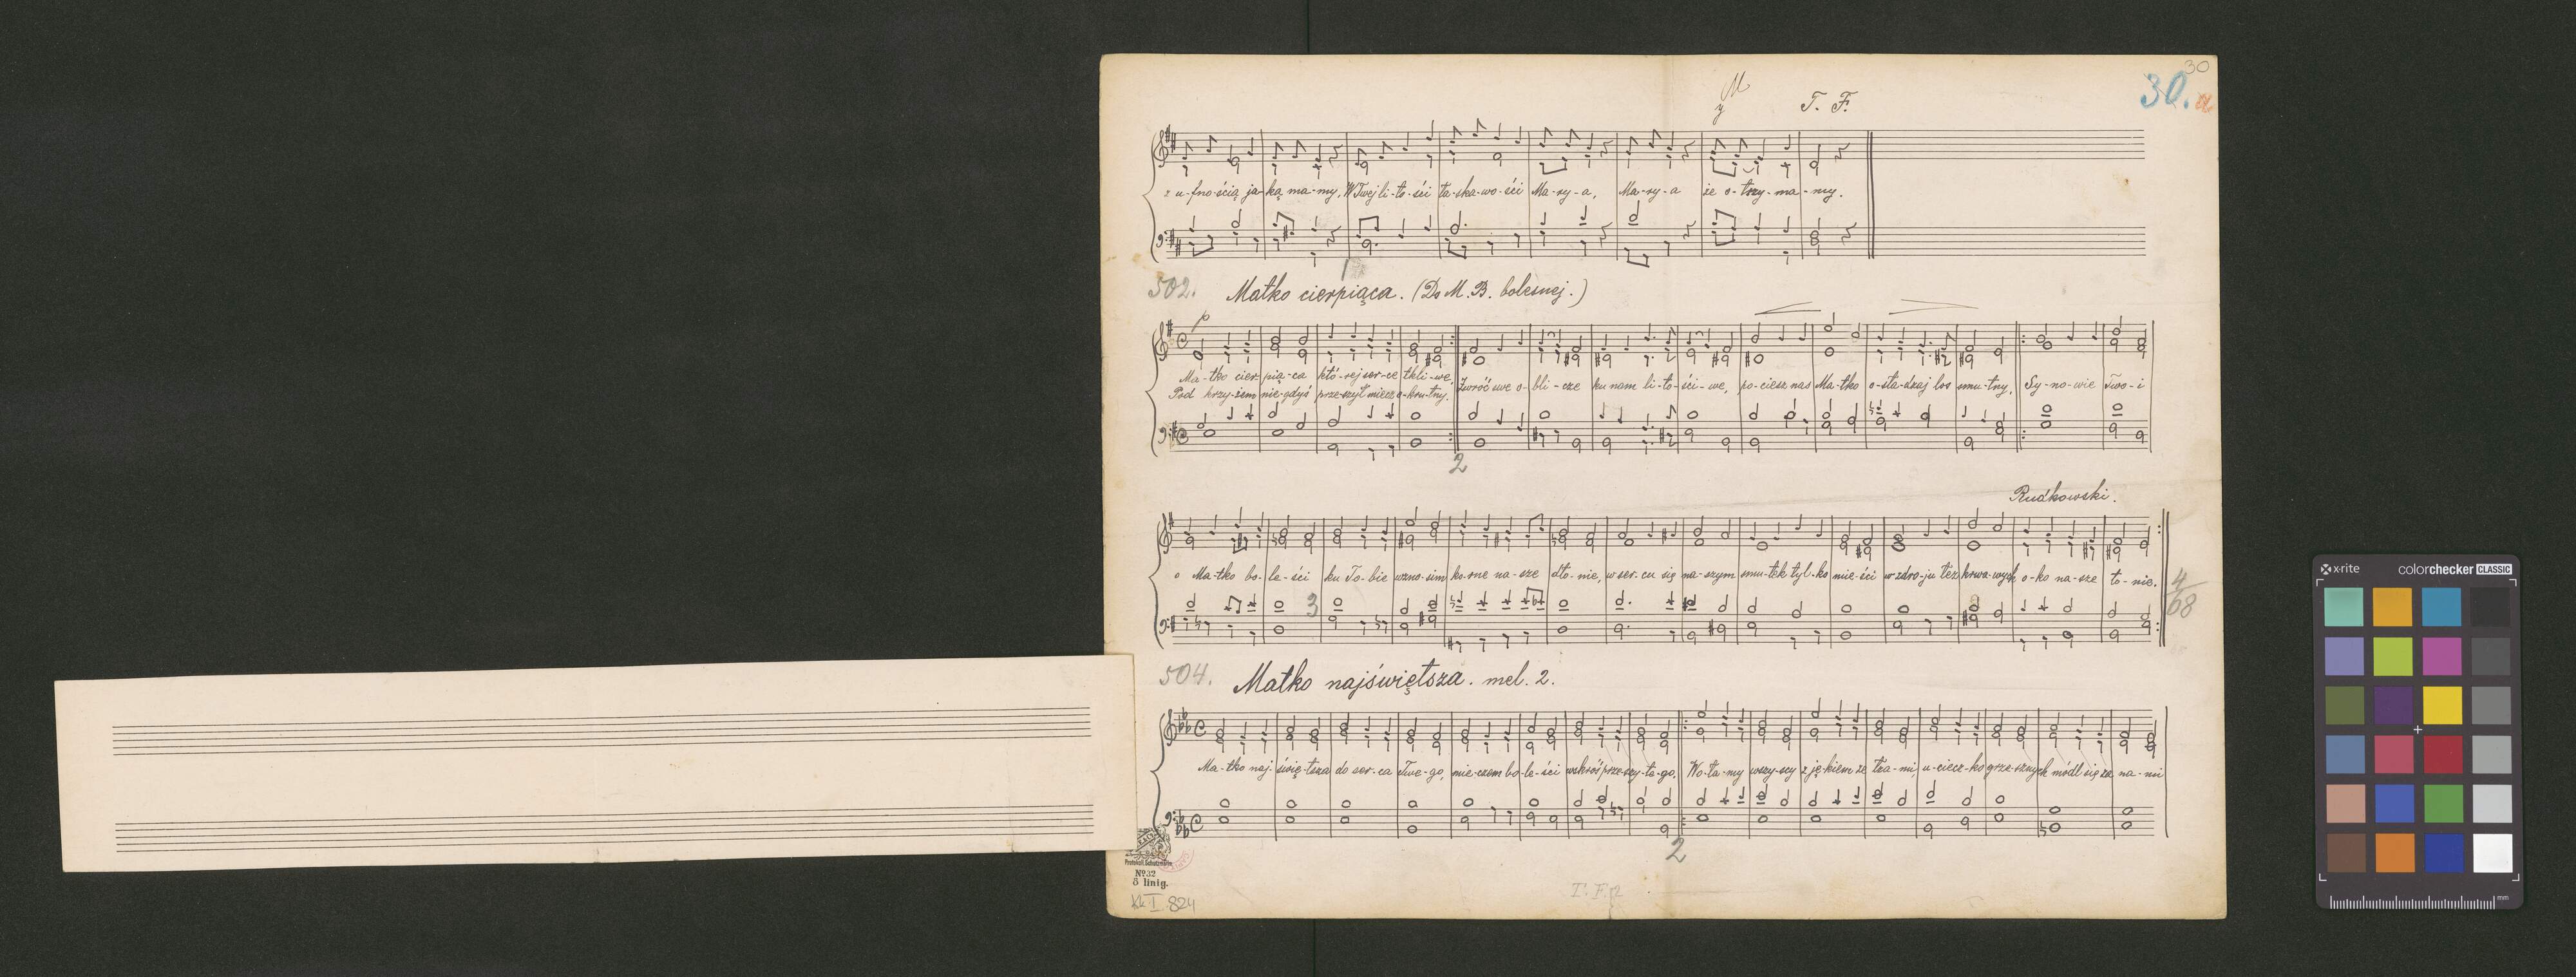 30
30. a
M
y T. F.
z u-fno-ścią ja-ką ma-my, W Twej li-to-ści ła-ska-wo-ści Ma-ry-a, Ma-ry-a że o-trzy-ma-my.
1
502. Matko cierpiąca. (Do M. B. bolesnej.)
p
Ma-tko cier-pią-ca któ-rej ser-ce tkli-we, Zwróć swe o-bli-cze ku nam li-to-ści-we, po-ciesz nas Ma-tko o-sła-dzaj los smu-tny, Sy-no-wie Two-i
Pod krzy-żem nie-gdyś prze-szył miecz o-kru-tny.
2
Rudkowski.
o Ma-tko bo-le-ści ku To-bie wzno-sim kor-ne na-sze dło-nie, w ser-cu się na-szym smu-tek tyl-ko mie-ści w zdro-ju łez krwa-wych o-ko na-sze to-nie.
3
4/68
504. Matko najświętsza. mel. 2.
Ma-tko naj-świę-tsza do ser-ca Twe-go, mie-czem bo-le-ści wskroś prze-szy-te-go, Wo-ła-my wszy-scy z ję-kiem ze łza-mi, u-ciecz-ko grze-sznych módl się za na-mi
2
Protokoll. Schutzmarke
No 32
8 linig.
KK I 824
T. F. 12
x-rite colorchecker CLASSIC
mm